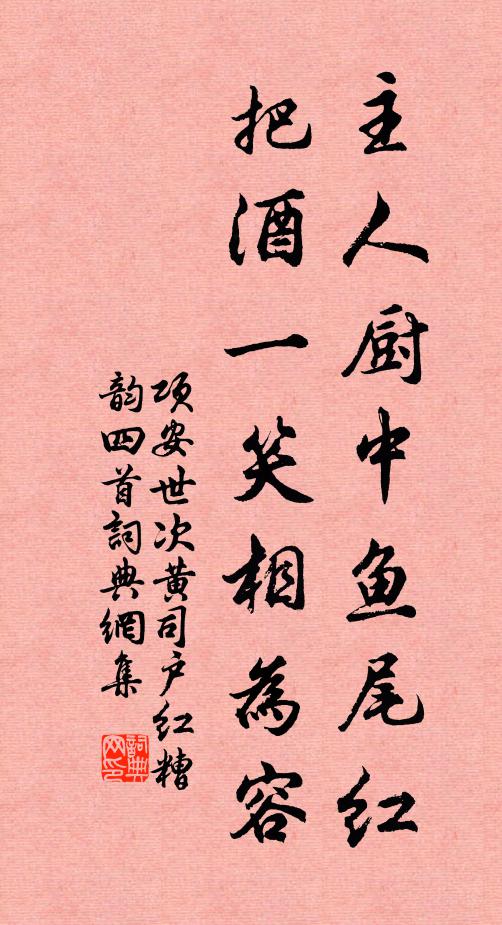 主人厨中鱼尾红
把酒一笑相為容
项安世次黄司户红糟
韵四首詞典網集
詞典网印